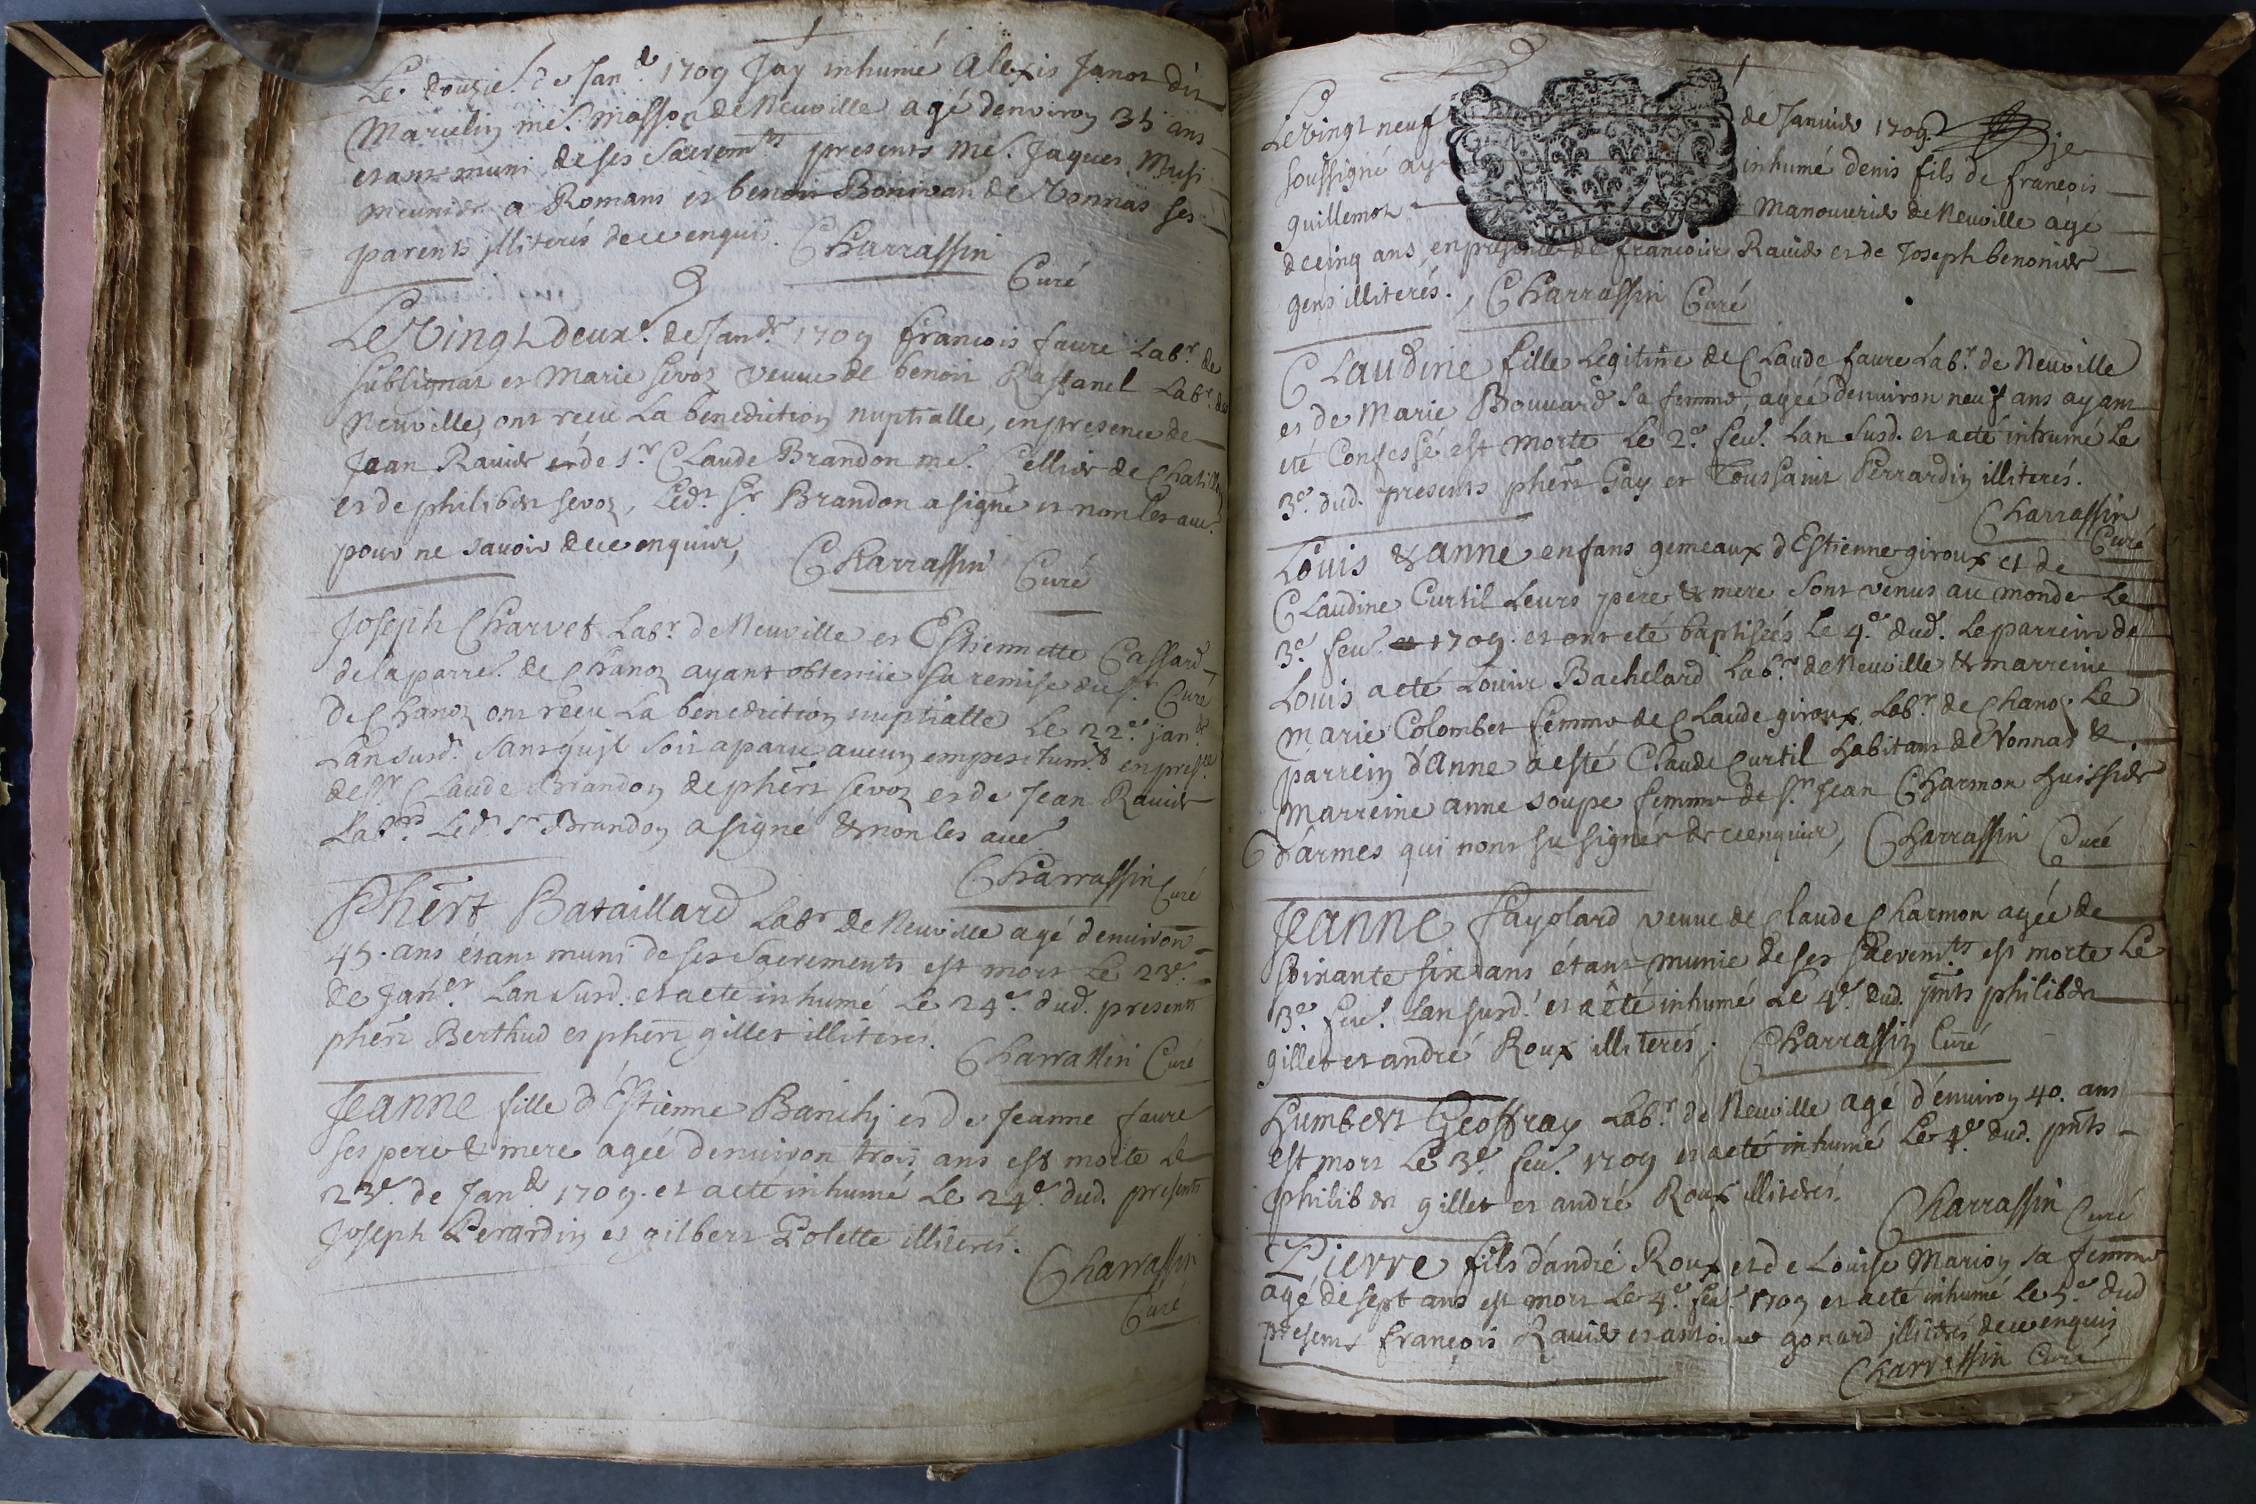 Le douzie. de Janr. 1709 Jay inhumé Alexis Janot dit
Marcelin me. masson de Neuville agé denviron 35 ans
etant muni de ses Sacremts presents me. Jaques Musi
meunier a Romans et benoit Bonivan de Vonnas ses
parents illiterés de ce enquis. Charrassin
Curé
Le Vingt deuxe. de Janr. 1709 francois faure Labr. de
Sublignat et Marie Sevoz veuve de benoit Rastanel Labr. de
Neuville, ont receu La benediction nuptialle, en presence de
Jean Ravier et de Sr. Claude Brandon me. Cellier de Chatillon
et de philibert Sevoz, Ledt Sr Brandon a signé et non les aue.
pour ne savoir de ce enquis, Charrassin Curé
Joseph Charvet Labr. de Neuville et Estiennette Cassard
de la parre. de Chanoz ayant obtenue sa remise du Sr. Curé
De Chanoz ont receu La benediction nuptialle Le 22e. janr.
Lan susd. sans quil soit aparu aucun empeschemt en prese.
de Sr. Claude Brandon de phert Sevoz et de Jean Ravier
Labrd Ledt Sr Brandon a signé & non les aue.
Charrassin Curé
Phert Bataillard Labr de Neuville agé denviron
45. ans étant muni de ses Sacrements est mort Le 23e.
de Janer. Lan susd. et a eté inhumé Le 24e. dud. presents
phert Berthud et phert gillet illiteres.
Charrassin Curé
Jeanne fille d'Estienne Banchy et de Jeanne faure
ses pere & mere agée denviron trois ans est morte le
23e. de Janr 1709. et a eté inhumé Le 24e. dud. presents
Joseph Perardin et gilbert Golette illiterés.
Charrassin
Curé
Le Vingt neuf de Janvier 1709 je
soussigné ay inhumé denis fils de francois
guillemot Manouvrier de Neuville agé
de cinq ans, en presence de francois Ravier et de Joseph benonier
gens illiterés. Charrassin Curé
Claudine fille Legitime de Claude faure Labr. de Neuville
et de Marie Bouvard sa femme, agée denviron neuf ans ayant
eté Confessé est morte Le 2e. feu. Lan susd. et a eté inhumé Le
3e. dud. presents phert Gay et Toussaint Perrardin illiterés.
Charrassin
Curé
Louis & anne enfans gemeaux d'Estienne giroux et de
Claudine Curtil Leurs pere & mere sont venus au monde Le
3e. feu. 1709. et ont eté baptisées Le 4e. dud. Le parrein de
Louis a eté Louis Bachelard Labr. de Neuville & marreine
marie Colombet femme de Claude giroux Labr. de Chano. Le
parrein d'Anne a esté Claude Curtil habitant de Vonnas &
marreine anne soupe femme de Sr. Jean Charmon huissier
d'armes qui n'ont su signer de ce enquis, Charrassin Curé
Jeanne Fayolard veuve de Claude Charmon agée de
soixante six ans étant munie de ses sacremts est morte Le
3e. feu. Lan susd. et a été inhumé Le 4e. dud. pnts philibert
gillet et andré Roux illiterés, Charrassin Curé
Humbert Geoffray Labr. de Neuville agé d'environ 40. ans
est mort Le 3e. feu. 1709 et a eté inhumé Le 4e. dud. pnts
philibert gillet et andré Roux illiterés.
Charrassin Curé
Pierre fils d'andré Roux et de Louise Marion sa femme
agé de sept ans est mort Le 4e. feu. 1709 et a eté inhumé Le 5e. dud
presents françois Ravier et antoine gonard illiterés de ce enquis
Charrassin Curé